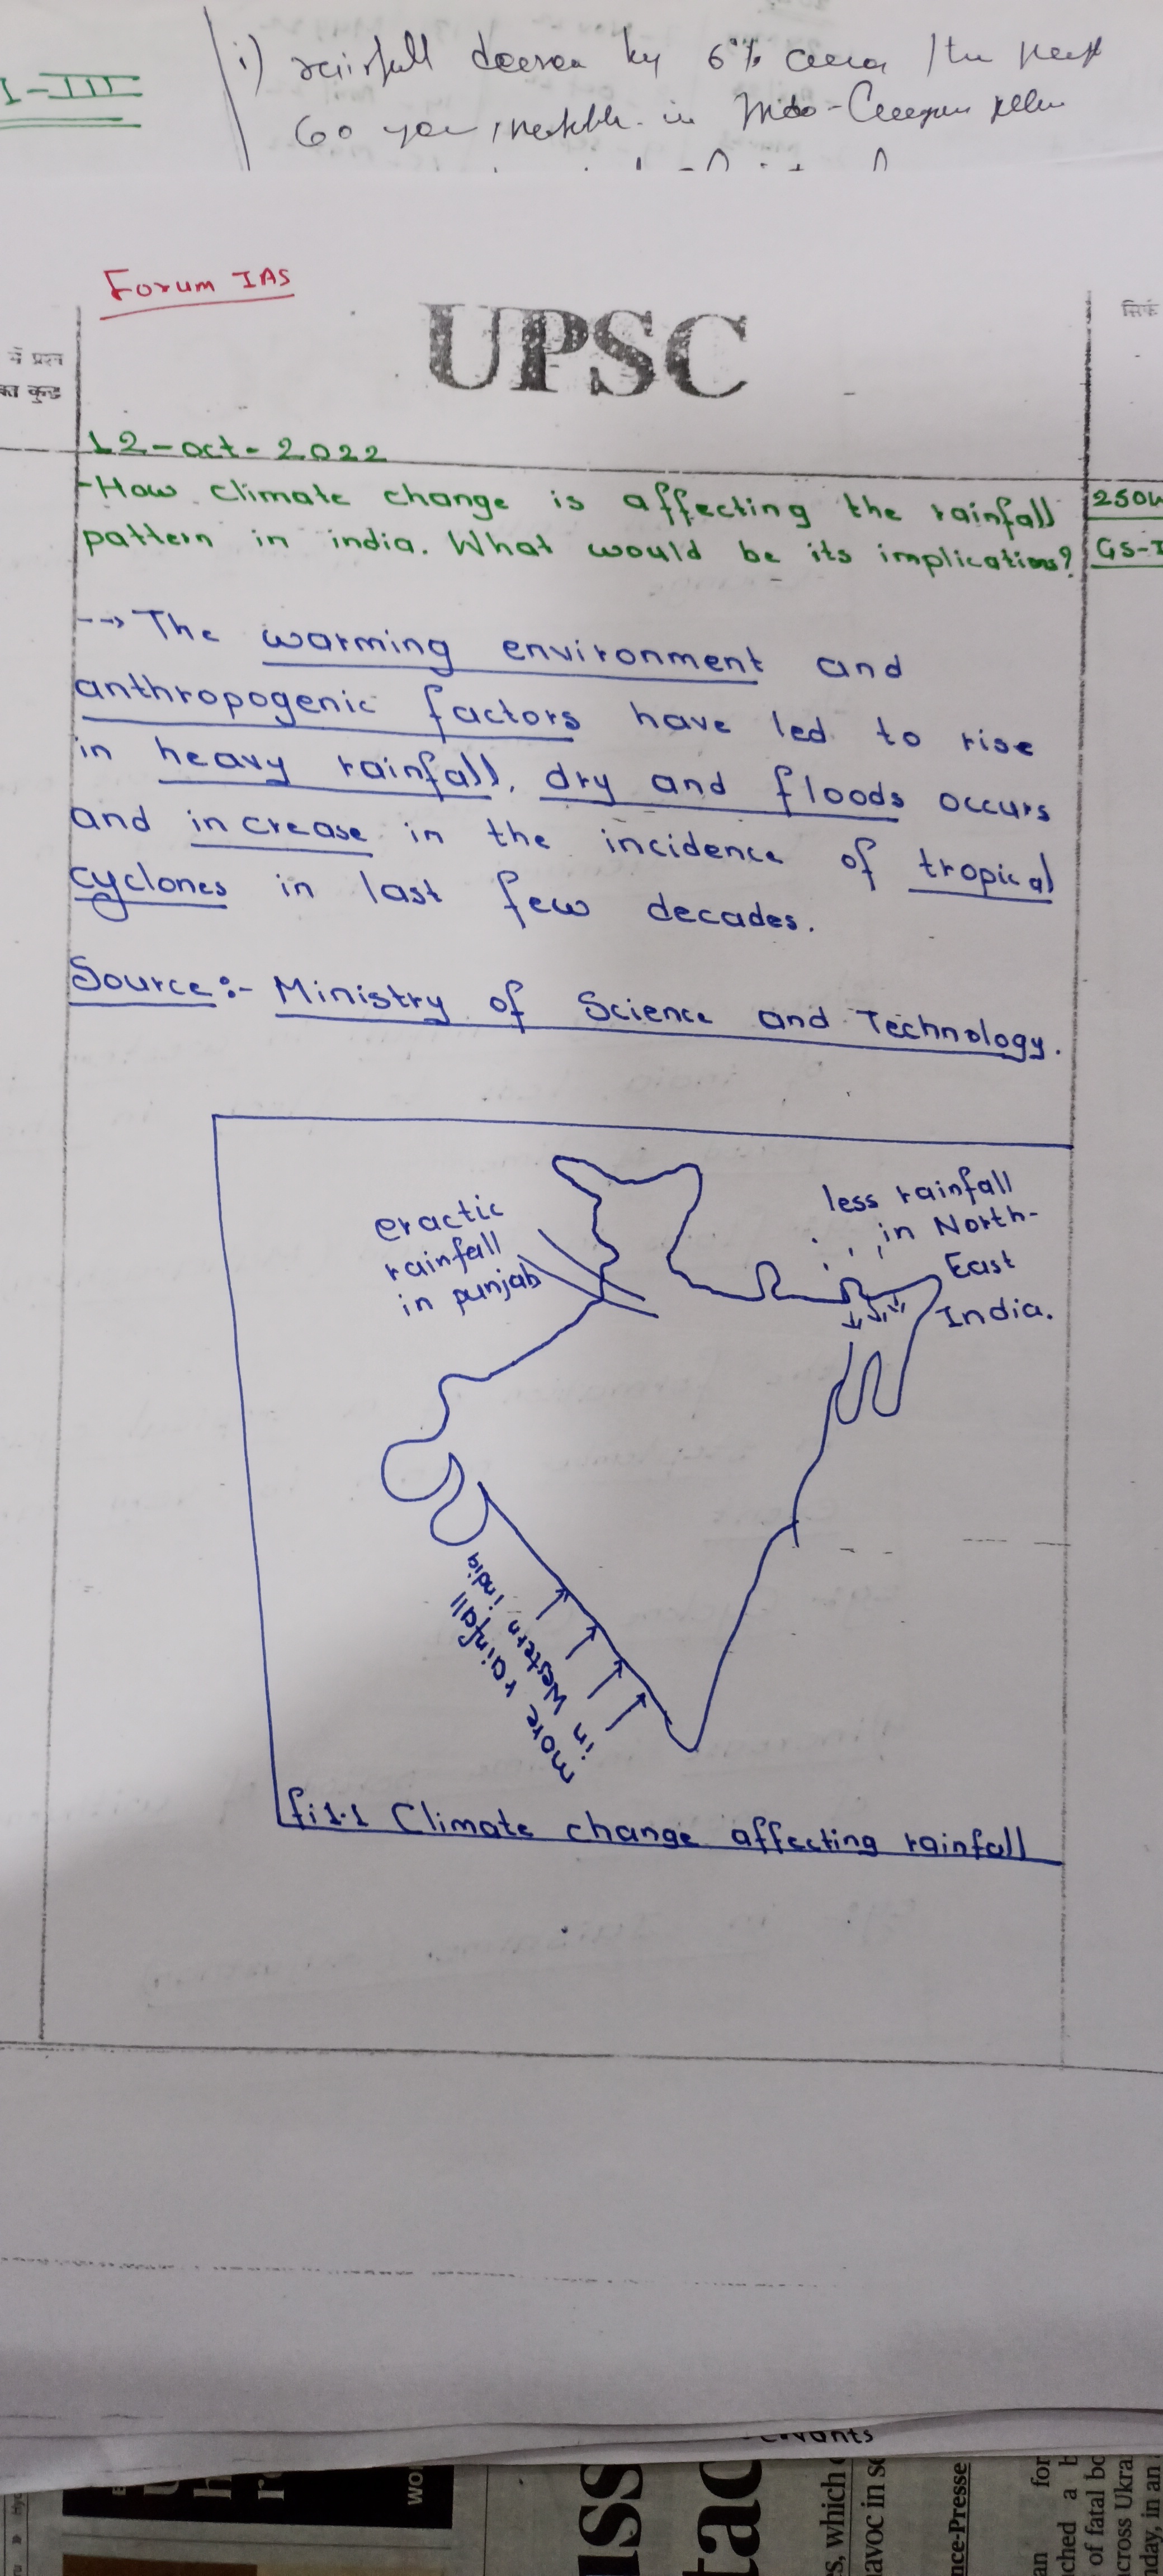 I-III
i) rainfall by 6% the past
60 in Indo-
Forum IAS
UPSC
में प्रश्न
का कुछ
सिर्फ
12-oct-2022
-How climate change is affecting the rainfall
250W
pattern in india. What would be its implications?
GS-I
--> The warming environment and
anthropogenic factors have led to rise
in heavy rainfall, dry and floods occurs
and increase in the incidence of tropical
cyclones in last few decades.
Source:- Ministry of Science and Technology.
eractic
rainfall
in punjab
less rainfall
in North-
East
India.
more rainfall
in Western india
fi1.1 Climate change affecting rainfall
uss
tac
s, which
avoc in
nce-Presse
wo
for
ched a b
of fatal bo
cross Ukra
day, in an